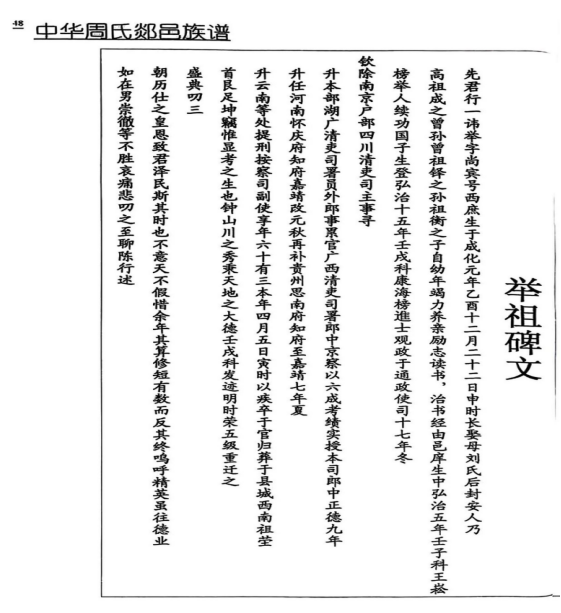 48
中华周氏郯邑族谱
举祖碑文
先君行一讳举字尚宾号西庶生于成化元年乙酉十二月二十二日申时长娶母刘氏后封安人乃
高祖成之曾孙曾祖铎之孙祖衡之子自幼年竭力养亲励志读书，治书经由邑庠生中弘治五年壬子科王崧
榜举人续功国子生登弘治十五年壬戌科康海榜進士观政于通政使司十七年冬
钦除南京户部四川清吏司主事寻
升本部湖广清吏司署员外郎事累官广西清吏司署郎中京察以六成考绩实授本司郎中正德九年
升任河南怀庆府知府嘉靖改元秋再补贵州思南府知府至嘉靖七年夏
升云南等处提刑按察司副使享年六十有三本年四月五日寅时以疾卒于官归葬于县城西南祖茔
首艮足坤竊惟显考之生也钟山川之秀乘天地之大德壬戌科发迹明时荣五级重迁之
盛典叨三
朝历仕之皇恩致君泽民斯其时也不意天不假惜余年其算修短有数而反其终呜呼精英虽往德业
如在男崇徹等不胜哀痛悲叨之至聊陈行述